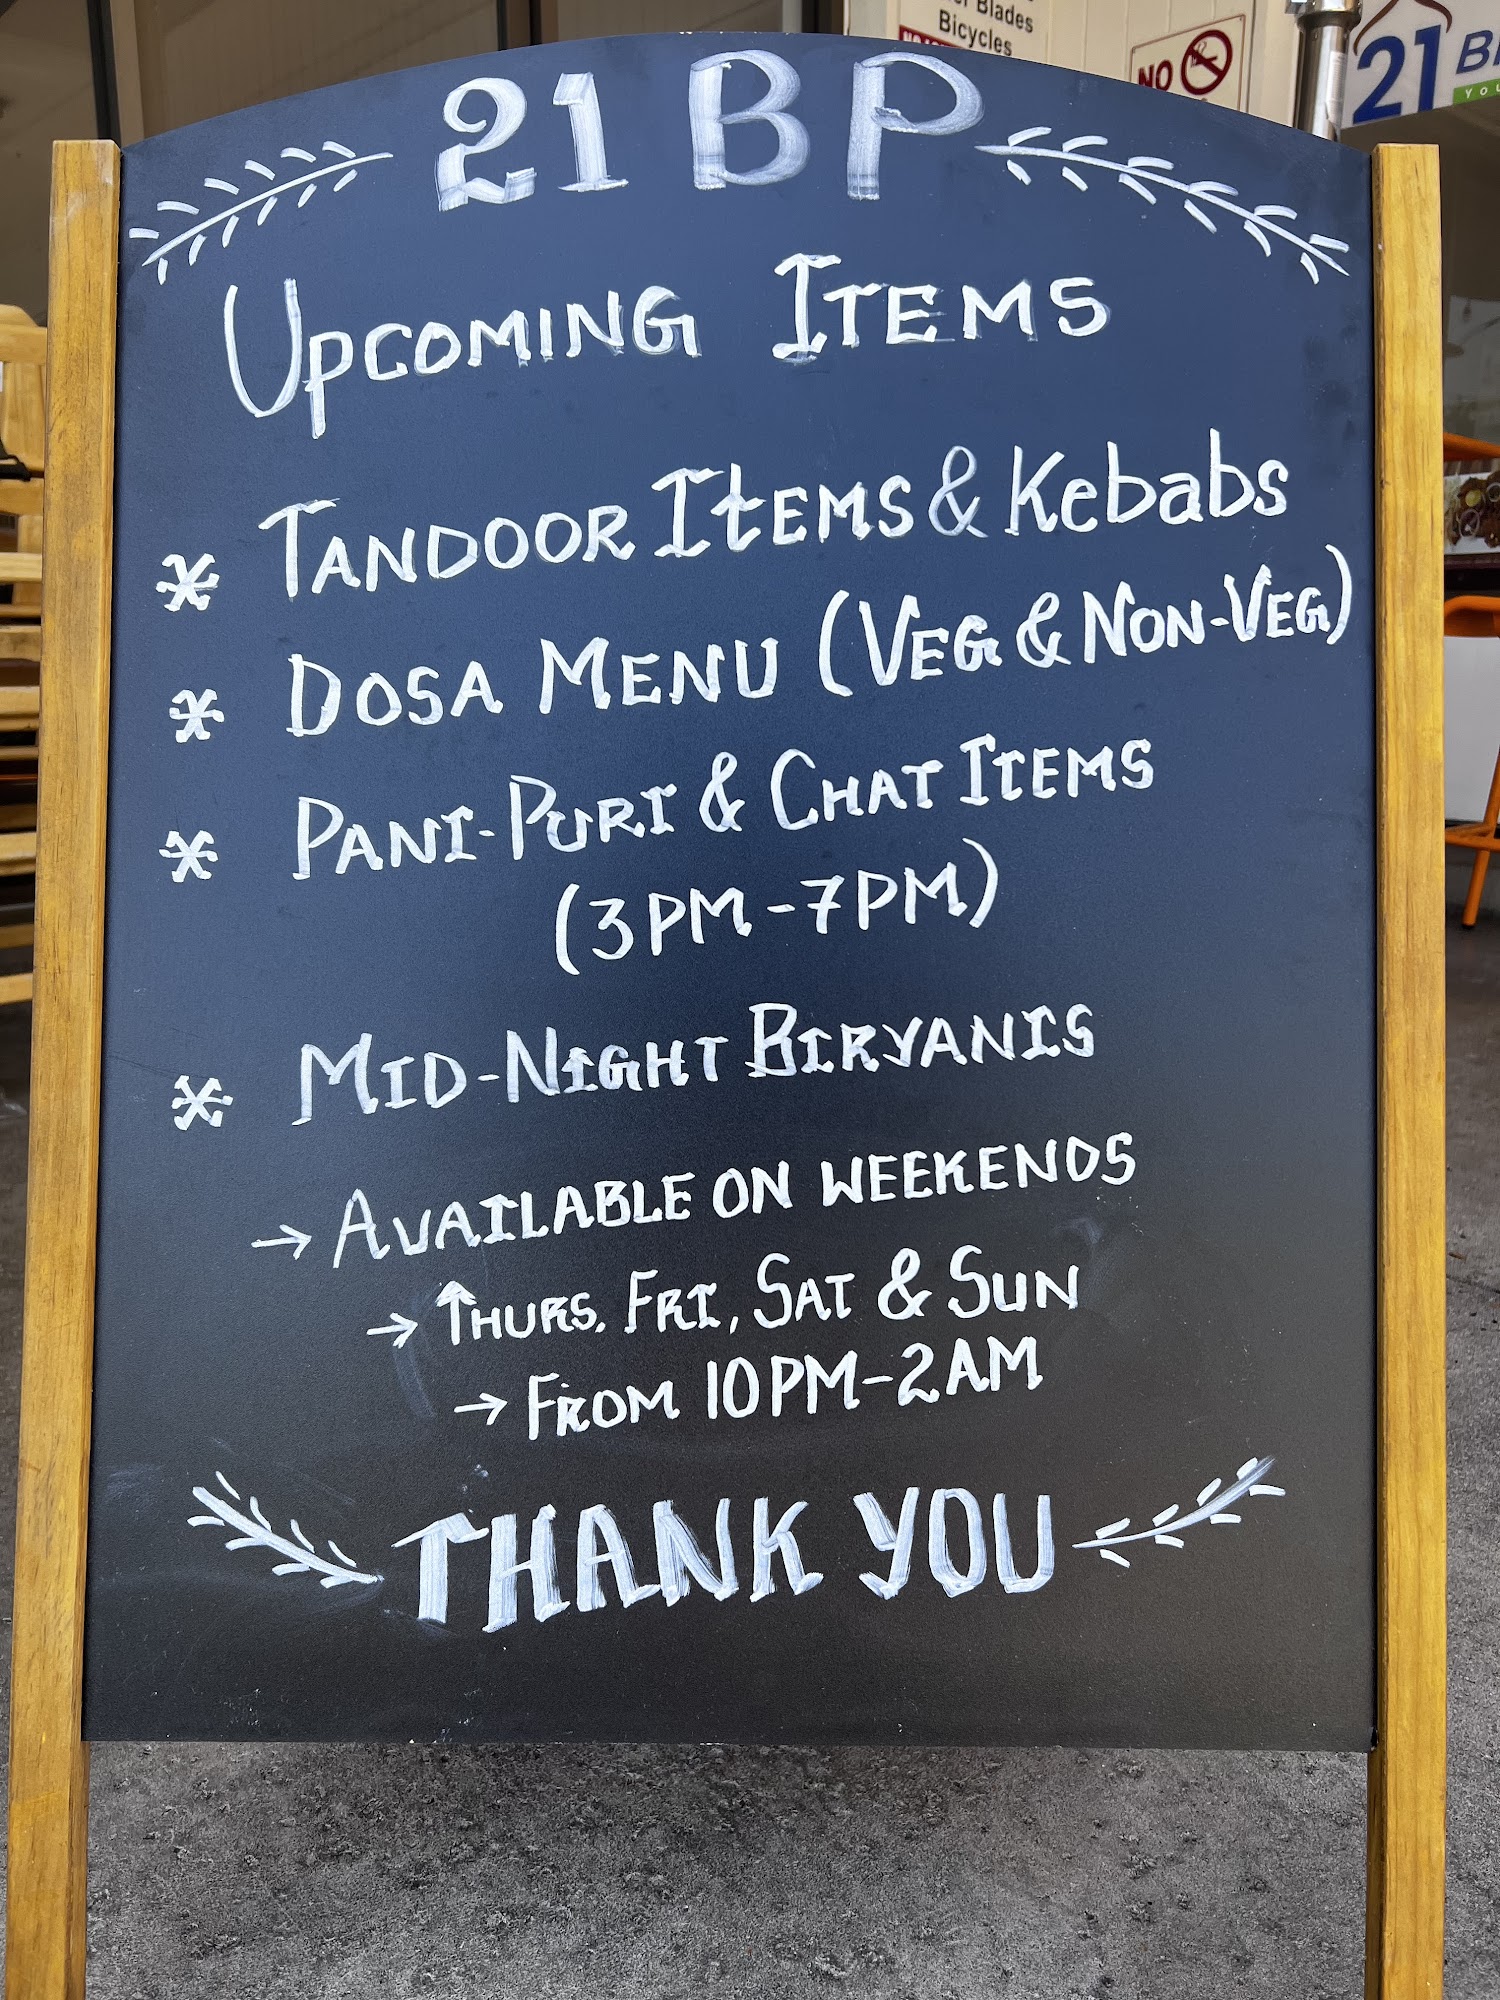 Blades
Bicycles
NO
21 B
YOU
21 BP
UPCOMING ITEMS
* TANDOOR ITEMS & Kebabs
* DOSA MENU (VEG & NON-VEG)
* PANI-PURI & CHAT ITEMS
(3PM-7PM)
* MID-NIGHT BIRYANIS
→ AVAILABLE ON WEEKENDS
→ THURS, FRI, SAT & SUN
→ FROM 10PM-2AM
THANK YOU